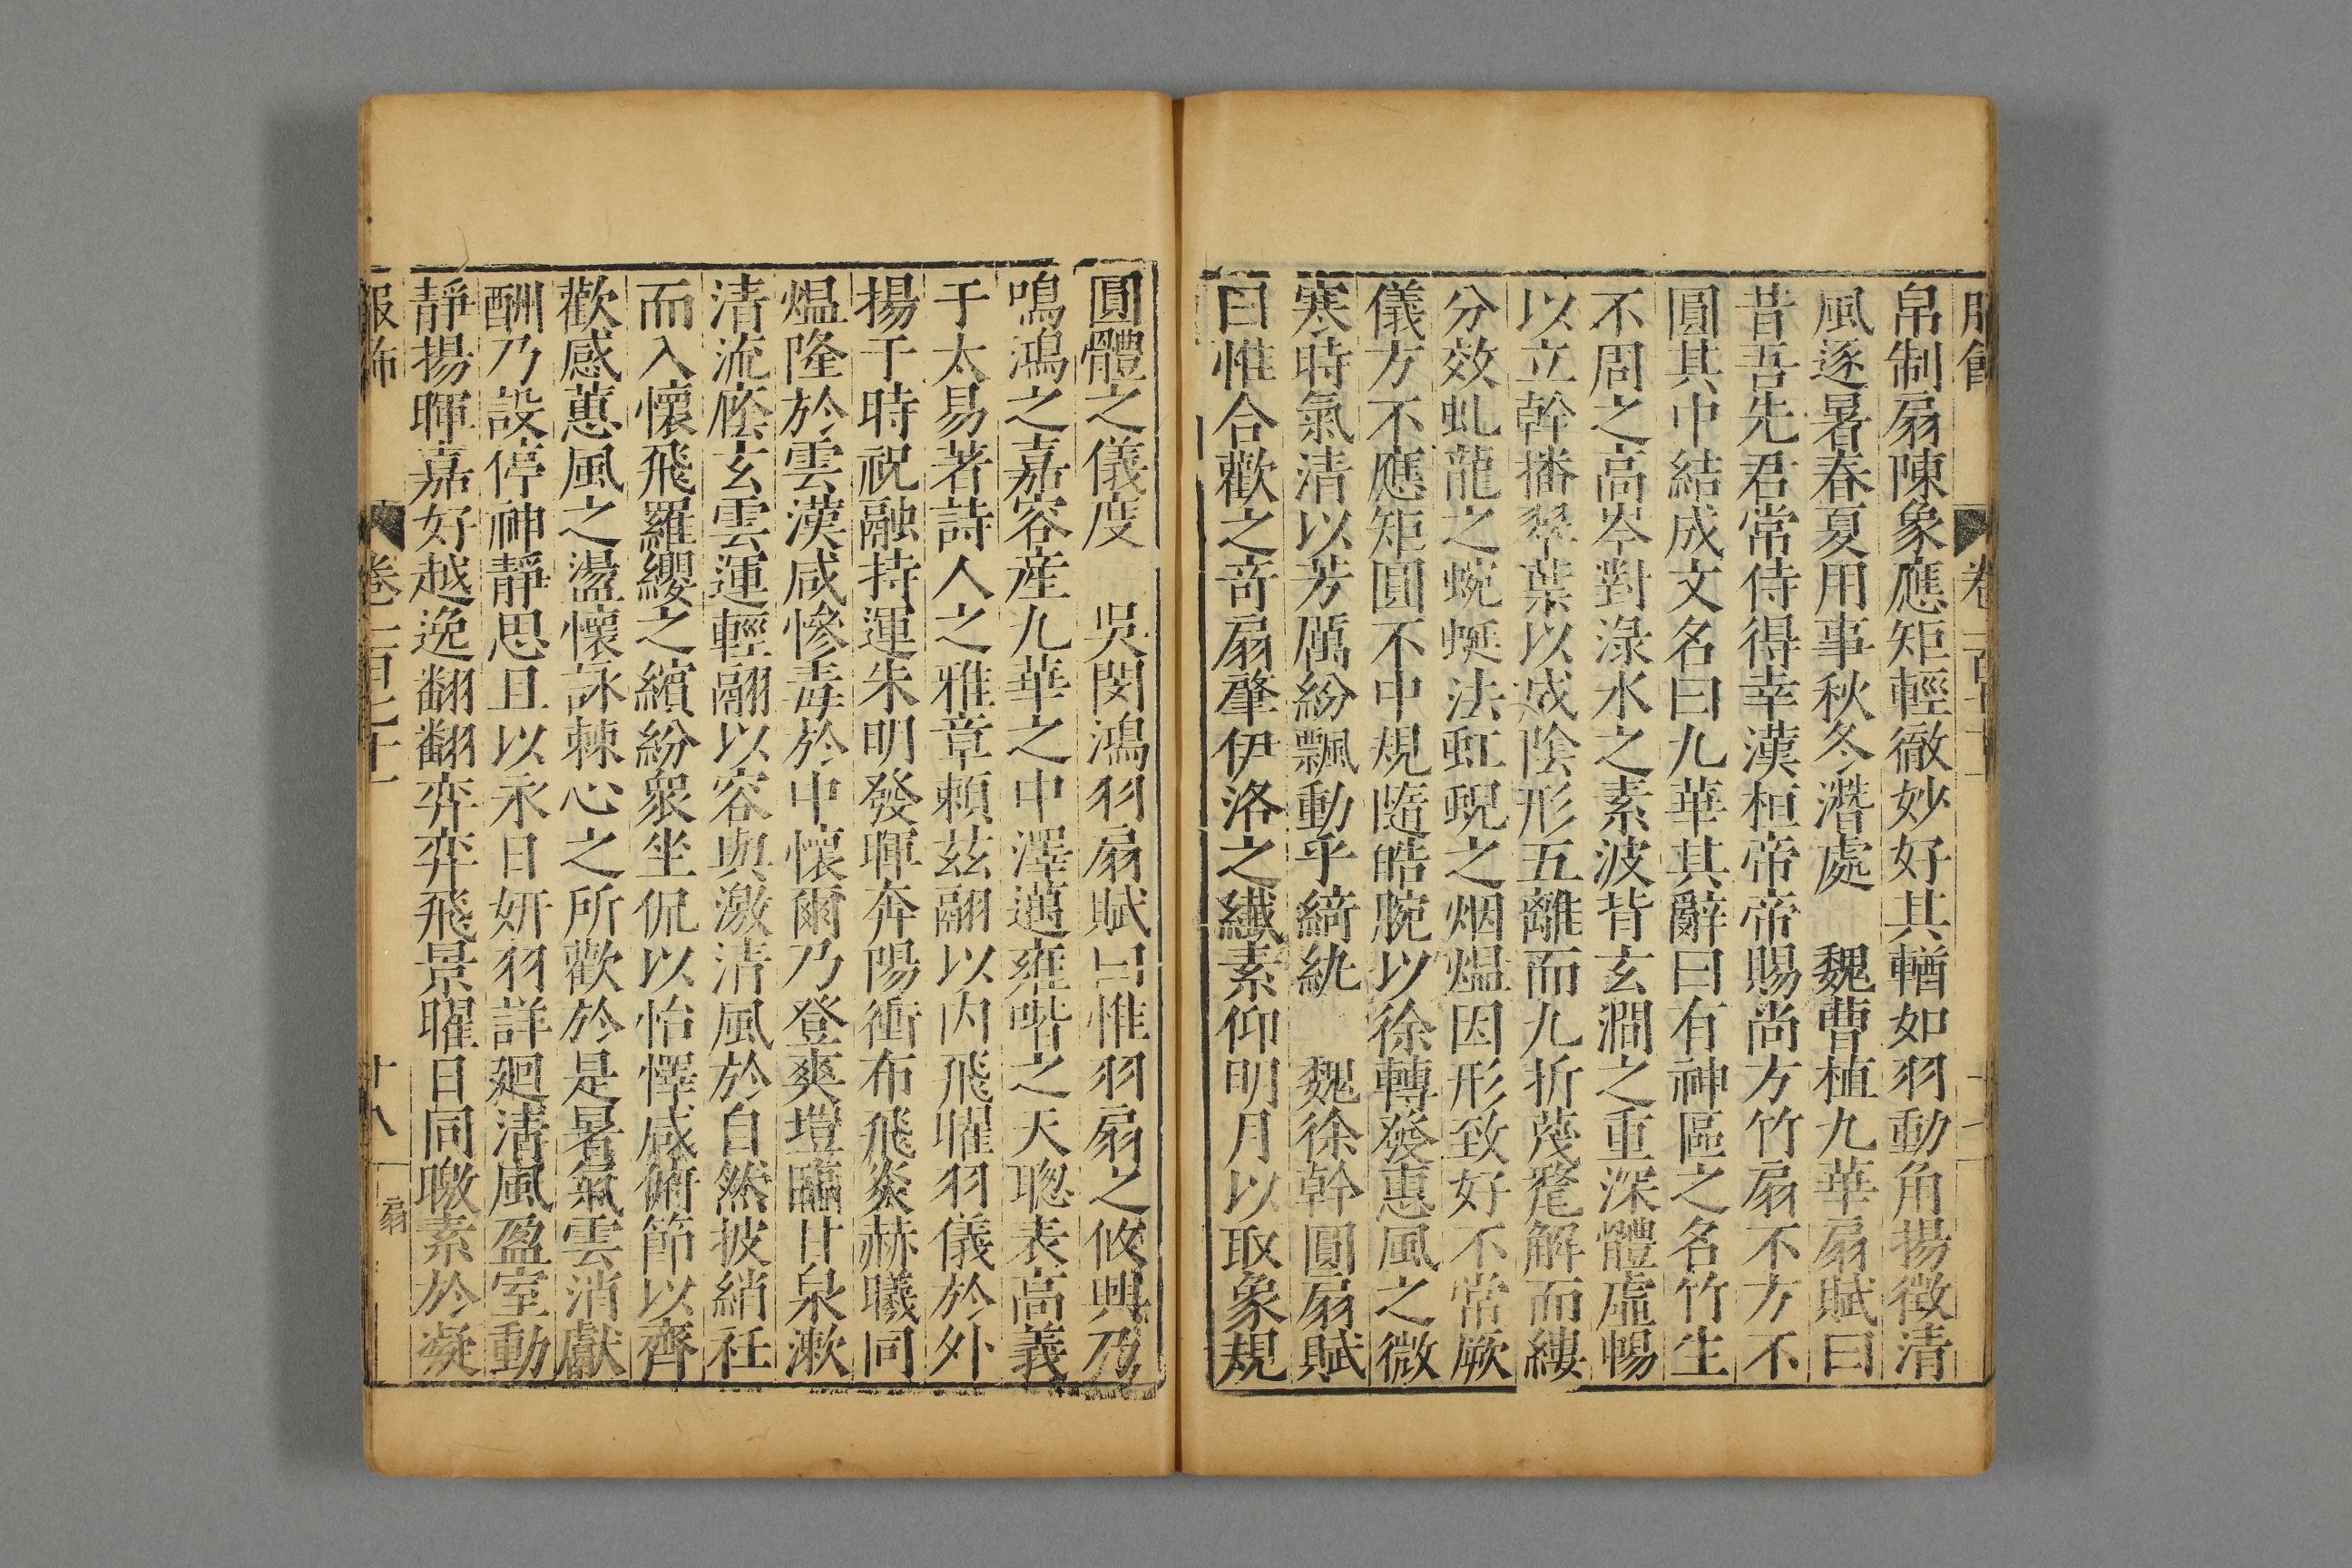 帛制扇陳象應矩輕徹妙好其輶如羽動角揚徵清
風逐暑春夏用事秋冬濳處　魏曹植九華扇賦曰
昔吾先君常侍得幸漢桓帝帝賜尚方竹扇不方不
圓其中結成文名曰九華其辭曰有神區之名竹生
不周之高岑對淥水之素波背玄澗之重深體虛暢
以立幹播翠葉以成陰形五離而九折茂氂解而縷
分效虬龍之蜿蜒法虹霓之烟熅因形致好不常厥
儀方不應矩圓不中規隨皓腕以徐轉發惠風之微
寒時氣清以芳厲紛飄動乎綺紈　魏徐幹圓扇賦
曰惟合歡之奇扇肇伊洛之纖素仰明月以取象規
圓體之儀度　吳閔鴻羽扇賦曰惟羽扇之攸興乃
鳴鴻之嘉容産九華之中澤邁雍喈之天聦表高義
于太易著詩人之雅章賴茲翮以內飛曜羽儀於外
揚于時祝融持運朱明發暉奔陽衝布飛炎赫曦同
熅隆於雲漢咸慘毒於中懷爾乃登爽塏臨甘泉漱
清流廕玄雲運輕翮以容與激清風於自然披綃衽
而入懷飛羅纓之繽紛衆坐侃以怡懌咸俯節以齊
歡感蕙風之盪懷詠棘心之所歡於是暑氣雲消獻
酬乃設停神靜思且以永日妍羽詳廻清風盈室動
靜揚暉嘉好越逸翻翻弈弈飛景曜日同皦素於凝
服飾　卷一百七十一　十八　扇